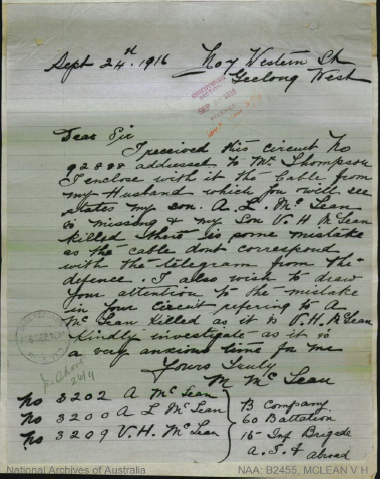 Sept 24th. 1916
No 4 Western St
Geelong West
Dear Sir
I received this circuit No
92888 addressed to Mr. Thompson
I enclose with it the Cable from
my Husband which you will see
states my son. A. L. Mc Lean
is missing & my Son V. H Mc Lean
killed there is some mistake
as the cable dont correspond
with the telegram from the
defence. I also wish to draw
your attention to the mistake
in your circuit refering to A
Mc Lean killed as it is V. H. Mc Lean
Kindly investigate as it is
a very anxious time for me
Yours Truly
M Mc Lean
No 3202 A Mc Lean
No 3200 A L Mc Lean
No 3209 V. H. Mc Lean
B Company
60 Battalion
15 Inf Brigade
A. I. F abroad
National Archives of Australia
NAA: B2455, MCLEAN V H